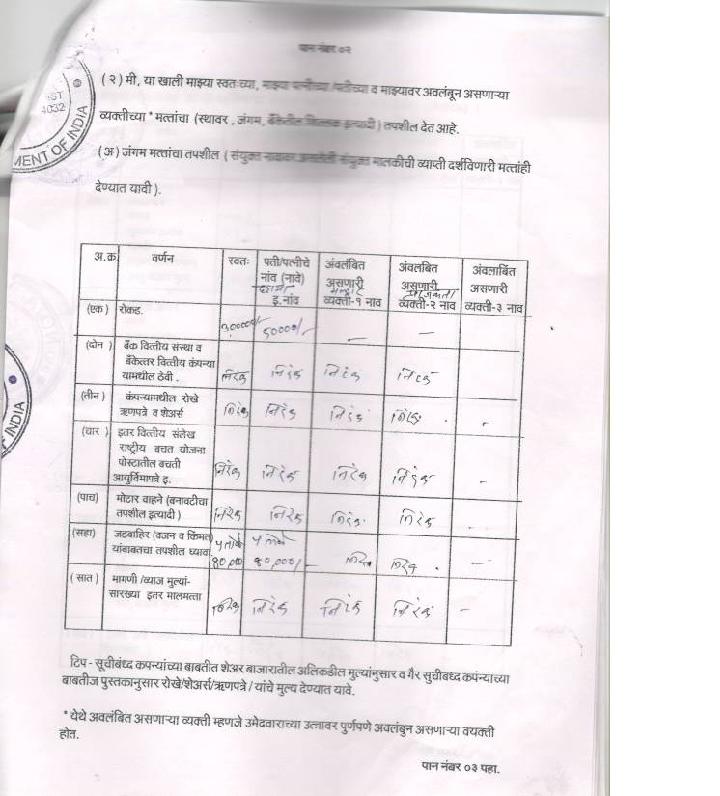 पान नंबर ०२
( २ ) मी, या खाली माझ्या स्वतःच्या, माझ्या पत्नीच्या /पतीच्या व माझ्यावर अवलंबून असणाऱ्या
व्यक्तीच्या *मत्तांचा (स्थावर , जंगम, इत्यादी ) तपशील देत आहे.
(अ) जंगम मत्तांचा तपशील ( संयुक्त संयुक्त मालकीची व्याप्ती दर्शविणारी मत्तांही
देण्यात यावी ).
ST
4032
MENT OF INDIA
अ.क्र वर्णन स्वतः पती/पत्नीचे नांव (नावे) इ.नांव अंवलंबित असणारी व्यक्ती-१ नाव अंवलंबित असणारी व्यक्ती-२ नाव अंवलाबिंत असणारी व्यक्ती-३ नाव
(एक) रोकड. 50000/- – –
(दोन ) बँक वित्तीय संस्था व
बँकेत्तर वित्तीय कंपन्या
यामधील ठेवी . निरंक निरंक निरंक निरंक
(तीन ) कंपन्यामधील रोखे
ऋणपत्रे व शेअर्स निरंक निरंक निरंक निरंक
(चार ) इतर वित्तीय संलेख
राष्ट्रीय बचत योजना
पोस्टातील बचती
इ. निरंक निरंक निरंक निरंक –
(पाच) मोटार वाहने (बनावटीचा
तपशील इत्यादी ) निरंक निरंक निरंक निरंक
(सहा) जडजवाहिर (वजन व किंमत
यांबाबतचा तपशील घ्यावा ५ तोळे ५ तोळे 80,000/- निरंक निरंक –
( सात ) मागणी /व्याज मुल्यां-
सारख्या इतर मालमत्ता निरंक निरंक निरंक निरंक –
OF INDIA
टिप - सूचीबंध्द कपन्यांच्या बाबतीत शेअर बाजारातील अलिकडील मुल्यांनुसार व गैर सुचीबध्द कपंन्याच्या
बाबतीज पुस्तकानुसार रोखे/शेअर्स/ऋणपत्रे / यांचे मुल्य देण्यात यावे.
*येथे अवलंबित असणाऱ्या व्यक्ती म्हणजे उमेदवाराच्या उत्नावर पुर्णपणे अवलंबुन असणाऱ्या वयक्ती
होत.
पान नंबर ०३ पहा.